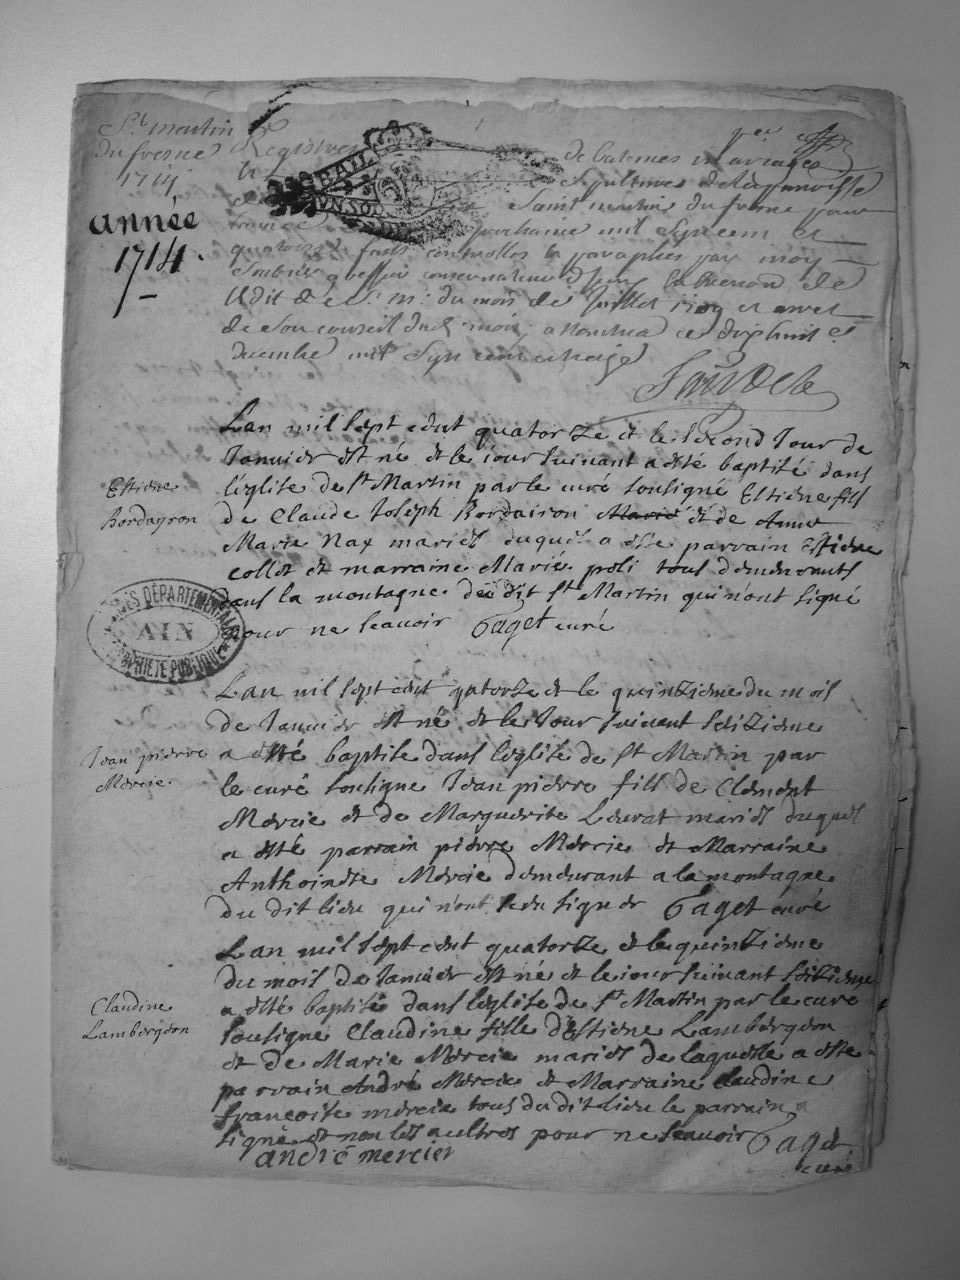 St martin
du fresne
1714
année
1714
Registre
de batemes mariages
Sepultures
Saint martin du fresne pour
prochaine mil Sept cent et
quatorze controllee & paraphee par moy
conservateur
Edit de du mois de Juillet et arrest
de Son conseil dud mois a Nantua ce dixhuit
decembre mil Sept cent treize
Lan mil sept cent quatorze et le second Jour de
Janvier est né et le jour suivant a esté baptisé dans
l'église de st Martin par le curé soussigné Estiene fils
de Claude Joseph Bordairon Marie et de Anne
Marie Nax mariés duquel a esté parrain Estiene
collet et marraine Marie poli tous demeurants
dans la montagne du dit st Martin qui n'ont signé
pour ne scavoir Gaget curé
Estiene
Bordayron
ARCHIVES DÉPARTEMENTALES
AIN
PROPRIÉTÉ PUBLIQUE
Lan mil sept cent quatorze et le quinzieme du mois
de Janvier est né et le Jour suivant seizieme
a esté baptisé dans l'eglise de St Martin par
le curé soussigné Jean pierre fils de Clement
Mercie et de Marguerite Levrat mariés duquel
a esté parrain pierre Mercie et Marraine
Anthoinete Mercie demeurant a la montagne
du dit lieu qui n'ont sceu signer Gaget curé
Jean pierre
Mercie
Lan mil sept cent quatorze et le quinzieme
du mois de Janvier est né et le jour suivant seizieme
a esté baptisé dans l'eglise de st Martin par le curé
soussigné Claudine fille d'Estiene Lambergdon
et de Marie Mercie mariés de laquelle a esté
parrain André Mercie et Marraine claudine
francoise mercie tous du dit lieu le parrain
signé et non les aultres pour ne scavoir Gaget
curé
andré mercier
Claudine
Lambergdon